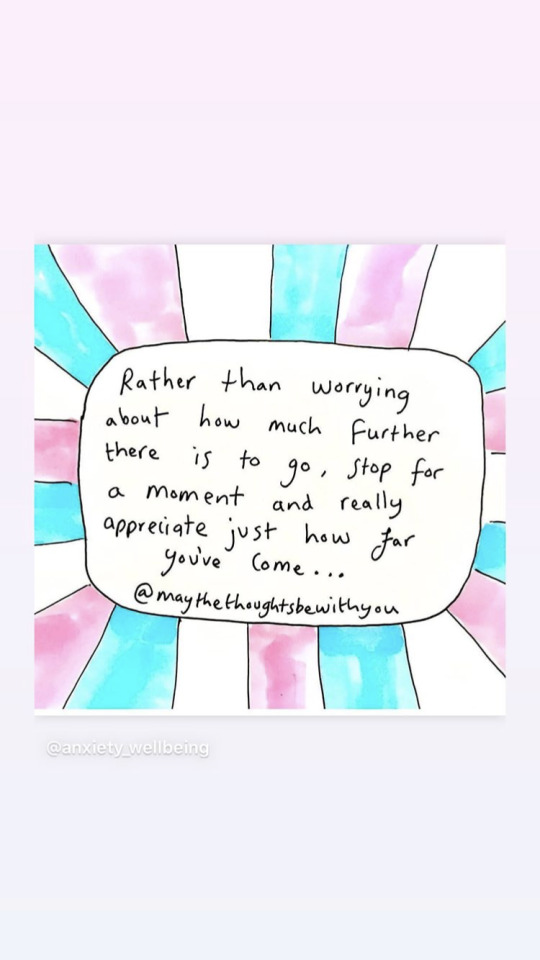 Rather than worrying
about how much further
there is to go, stop for
a moment and really
appreciate just how far
you've come...
@maythethoughtsbewithyou
@anxiety_wellbeing